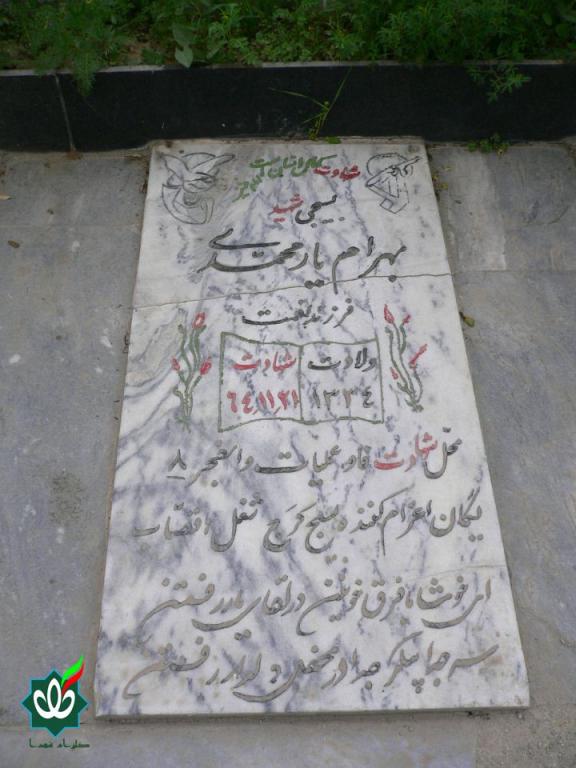 شهادت کمال انسان است
بسیجی شهید
بهرام یارمحمدی
فرزند نعمت
ولادت شهادت
۱۳۳٤ ٦٤,۱۱,۲۱
محل شهادت فاو عملیات والفجر ۸
یگان اعزام کننده بسیج کرج شغل قصاب
ای خوشا با فرق خونین در لقای یار رفتن
سر جدا پیکر جدا در محفل دلدار رفتن
گلزار شهدا